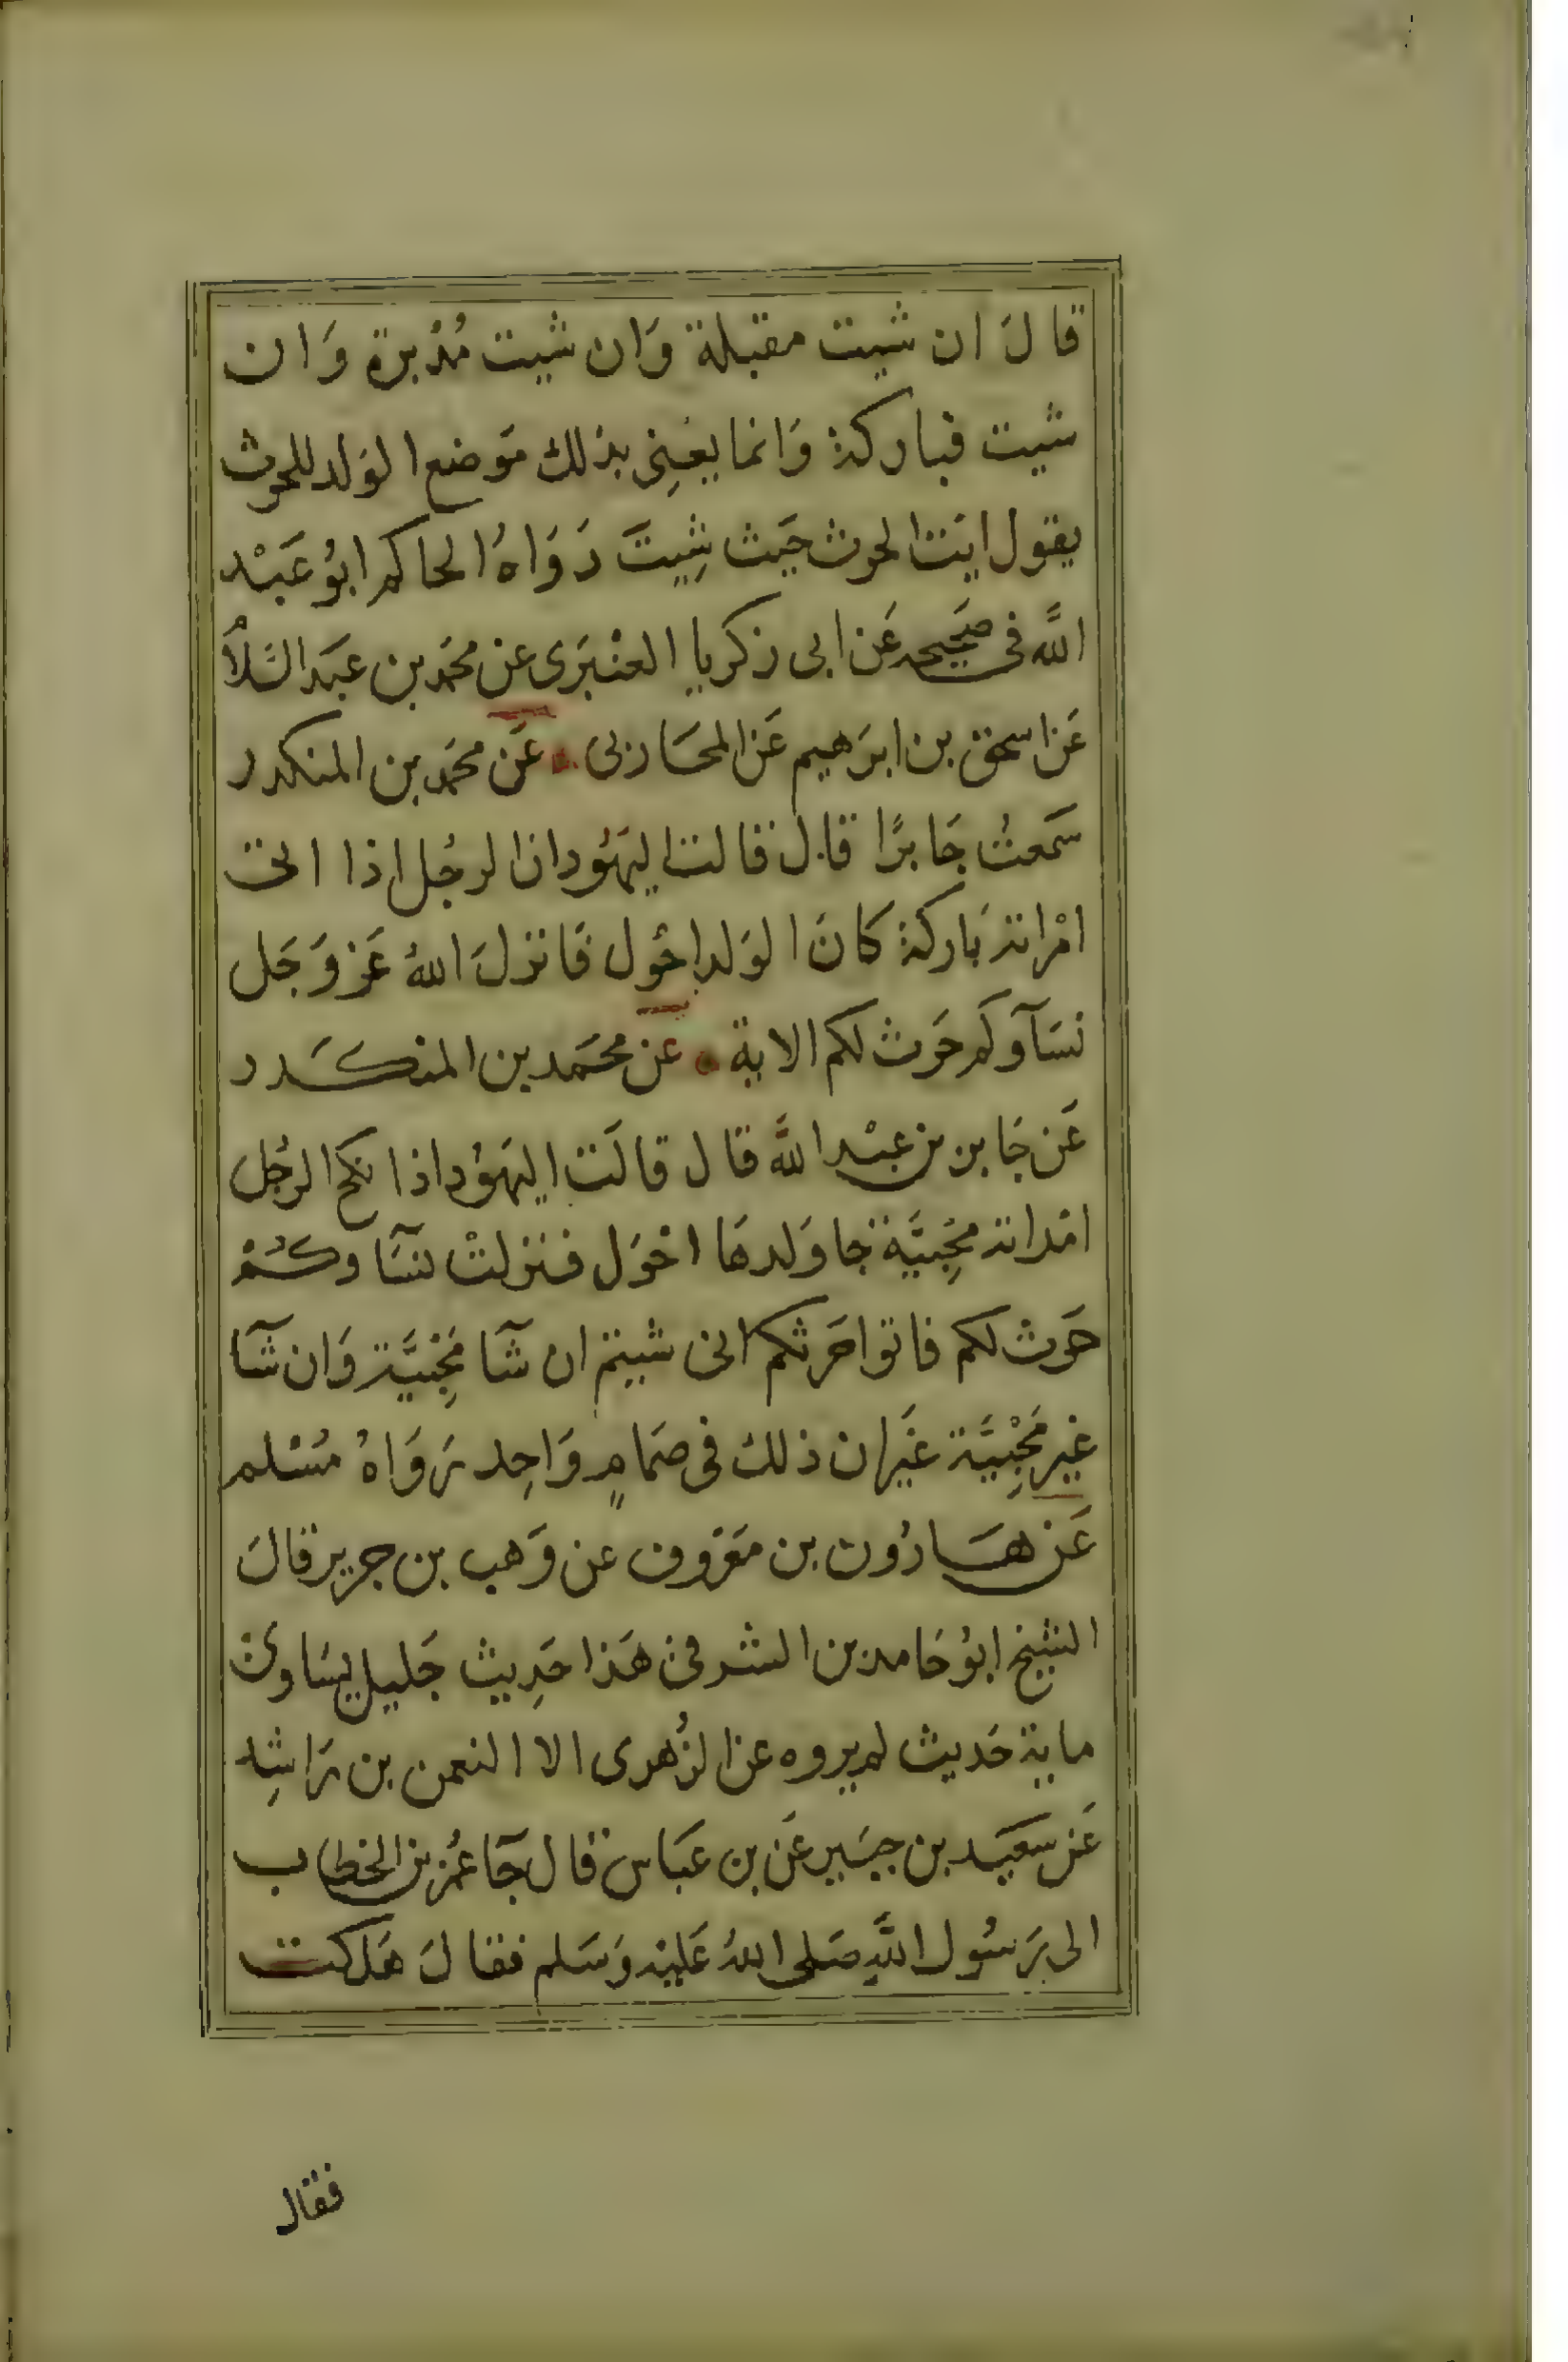 قالَ ان شيت مقبلة وَان شيت مُدْبرة وَان
شيت فباركة وَانما يعْنِى بذلك مَوضع الوَلد للحرث
يقول ايَت الحرث حَيث شِيتَ رَوَاهُ الحاكم ابوُ عَبْد
اللَّه فى صَحيحه عَن ابى زكريا العنْبَرى عن محمَد بن عبَد السَّلامُ
عَن اسحق بن ابرَهيم عَن المحَاربى عَن محمَد بن المنكدر
سَمعتُ جَابرًا قال قالت اليهَوُد ان الرجُل اذا اتى
امْراته بَاركة كانَ الوَلد احْول فَانزلَ اللهُ عَز وَجَل
نسَآوكم حَرث لكم الاية عن محمَد بن المنكَدر
عَن جَابر بن عبْد اللَّه قال قالَت اليهَوُد اذا نكح الرجُل
امْراته مجُبِيَّة جَا وَلدهَا احْوَل فنزلتْ نسَآوكُمْ
حَرث لكم فاتوا حَرثكم انى شيتم ان شَآ مجْبِيَّة وَان شَآ
غيْر مَجْبِيَّة غيَر ان ذلك فى صمَامٍ وَاحِد رَوَاهُ مُسْلم
عَن هَارُون بن معَرُوف عن وَهب بن جرير قالَ
الشيخ ابوُ حَامد بن الشرقى هَذا حَدِيث جَليل يسَاوى
ماية حَديث لم يروه عن الزُهرى الا النعمن بن رَاشِد
عَن سَعيَد بن جبَير عَن بن عبَاس قال جَآ عُمر بن الخطاب
الى رَسُول اللَّهِ صَلى اللهُ عَليْه وَسَلم فقالَ هَلكت
فقال